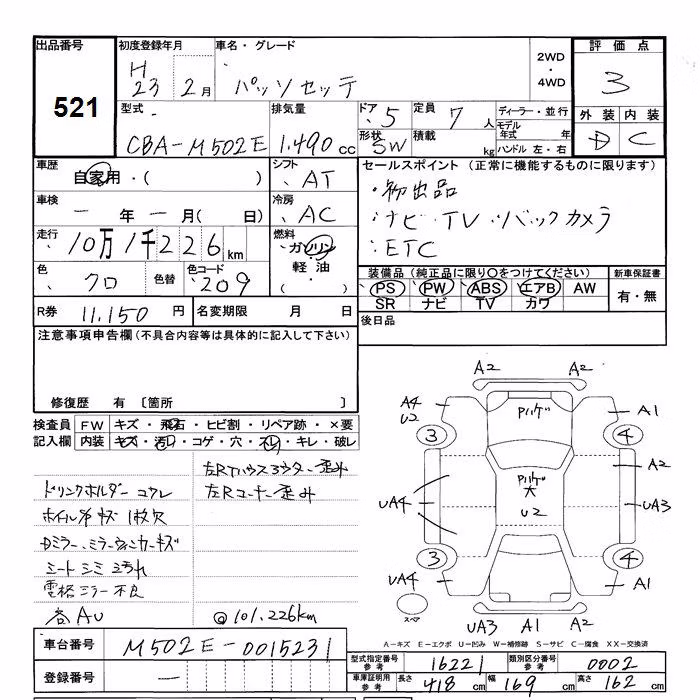 出品番号 初度登録年月 車名・グレード 評価点
521
H 23 2月 パッソセッテ 2WD・4WD 3
型式 排気量 ドア 5 定員 7人 ディーラー・並行 外装 内装
CBA-M502E 1,490cc 形状 SW 積載 kg モデル年式 年 ハンドル 左・右 D C
車歴 自家用・( ) シフト AT セールスポイント (正常に機能するものに限ります)
・初出品
車検 ー年ー月( 日) 冷房 AC ・ナビ・TV・バックカメラ
走行 10万1千226km 燃料 ガソリン・軽油・( ) ・ETC
色 クロ 色替 色コード 209 装備品 (純正品に限り○をつけてください) 新車保証書
PS PW ABS エアB AW 有・無
SR ナビ TV カワ
R券 11,150円 名変期限 月 日 後日品
注意事項申告欄(不具合内容等は具体的に記入して下さい)
修復歴 有 〔箇所
検査員記入欄 FW キズ・飛石・ヒビ割・リペア跡・×要
内装 キズ・汚レ・コゲ・穴・スレ・キレ・破レ
ドリンクホルダー コワレ
ホイルキャップ 1枚欠
Dミラー、ミラーウィンカーキズ
シート シミ ヨゴレ
電格ミラー不良
各AU
左Rコーナー歪み
@101,226km
A2 A2
A4 U2 Pハゲ A1
3 4
A2
UA4 Pハゲ大 U2 UA3
3 4
UA4 A1
スペア UA3 A1 A2
A-キズ E-エクボ U-凹み W-補修跡 S-サビ C-腐食 XX-交換済
車台番号 M502E-0015231
型式指定番号 参考 16221 類別区分番号 参考 0002
登録番号 ー
車庫証明用 参考 長さ 418cm 幅 169cm 高さ 162cm